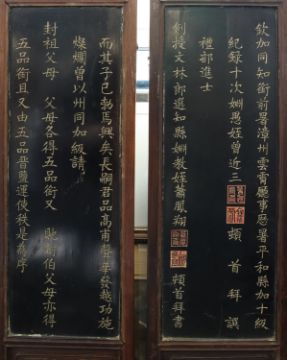 而其子已勃焉興矣長嗣君品高甫聲華發越功施
燦爛曾以州同加級請
封祖父母 父母各得五品銜又 馳封伯父母亦得
五品銜且又由五品晉鹽運使秩是為序
欽加同知銜前署漳州雲霄廳事歷署平和縣加十級
紀錄十次姻愚姪曾近三 頓首拜譔
禮部進士
勅授文林郎選知縣姻教姪蕭鳳翔 頓首拜書